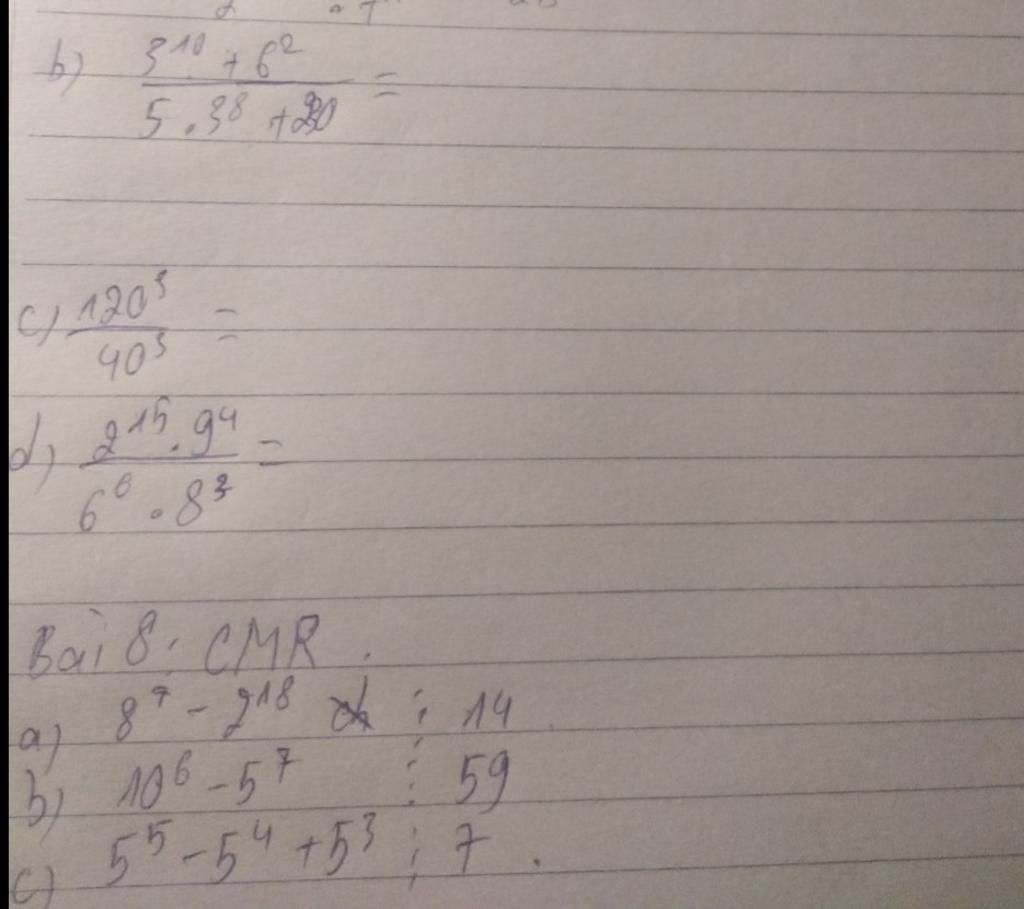 b) \frac{3^{10} + 6^2}{5 . 3^8 + 20} =
c) \frac{120^3}{40^3} =
d) \frac{2^{15} . 9^4}{6^6 . 8^3} =
Bài 8: CMR .
a) 8^7 - 2^{18} ⋮ 14
b) 10^6 - 5^7 ⋮ 59
c) 5^5 - 5^4 + 5^3 ⋮ 7 .